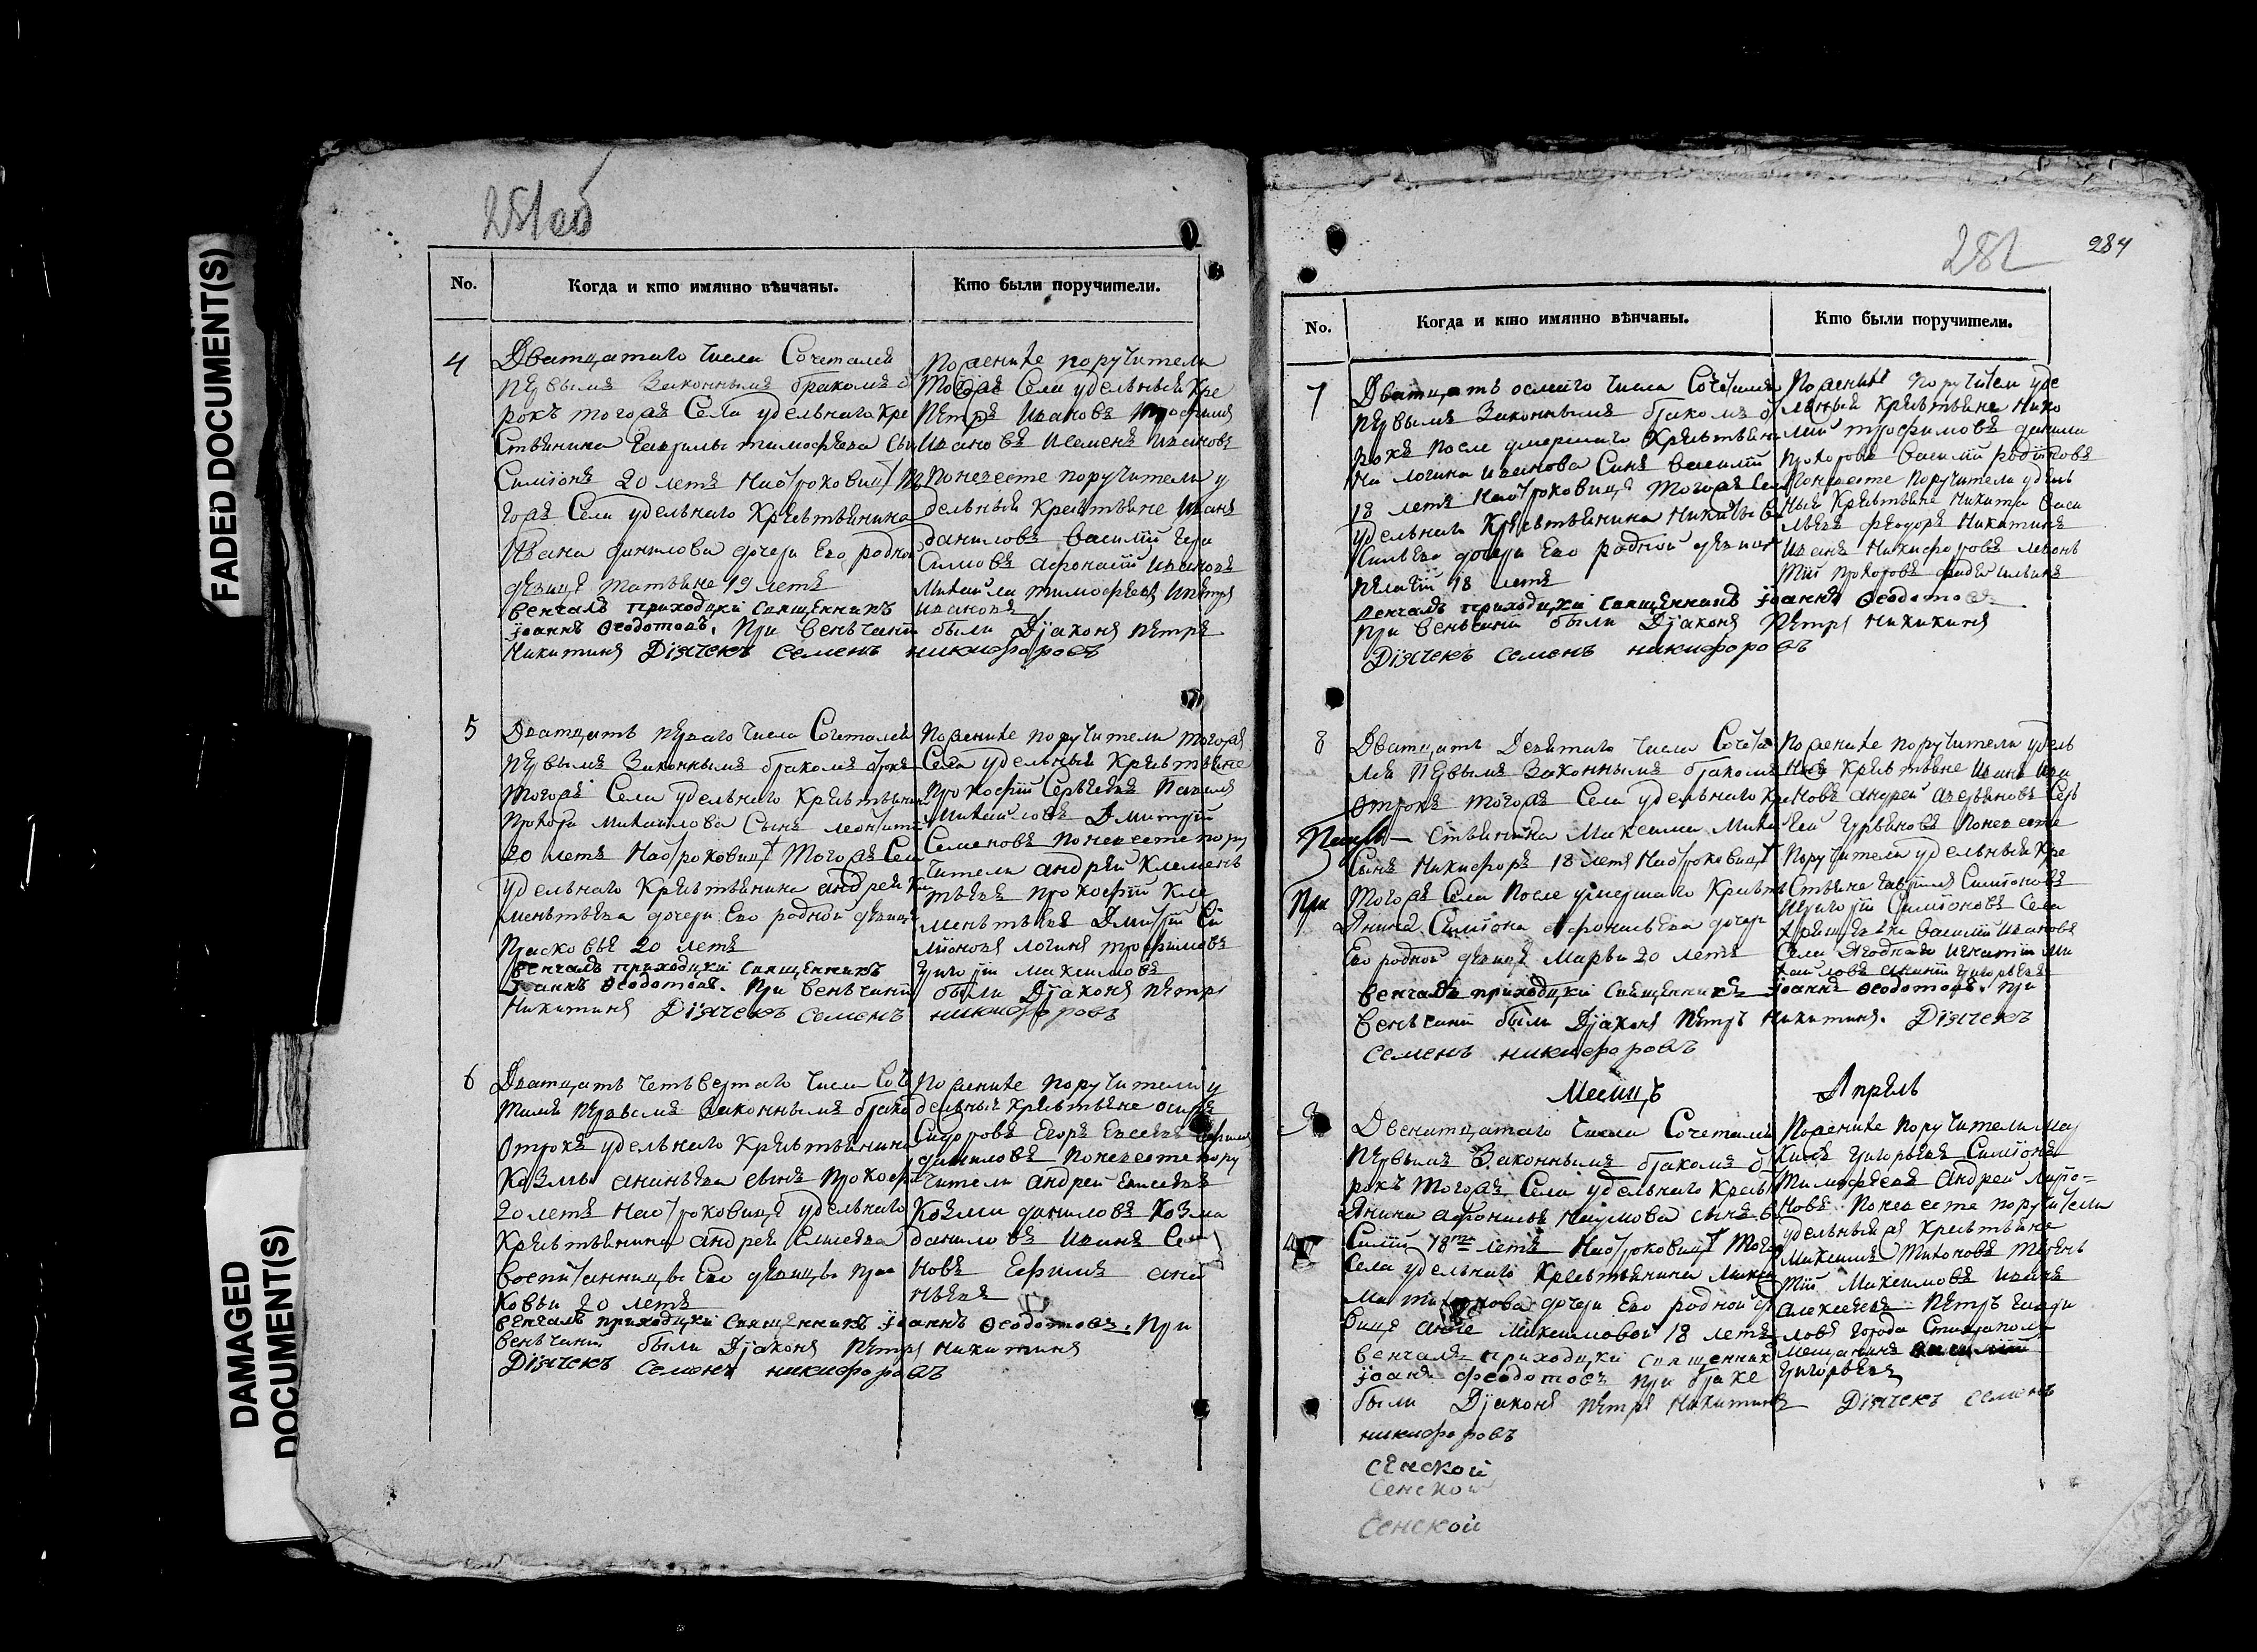 FADED DOCUMENT(S)
DAMAGED DOCUMENT(S)
281 об
No.
Когда и кто имянно вѣнчаны.
Кто были поручители.
4
Дватцатаго числа Сочетался
первымъ Законнымъ бракомъ о
рокъ тогожъ Села удельнаго Кре
стьянина Гаврилы тимофѣева Сы
Симіонъ 20 летъ Наотроковицѣ то
гожъ Села удельнаго Крестьянина
Ивана данилова дочери Его родной
дѣвицѣ Татьяне 19 летъ
венчалъ приходцкій священникъ
Іоаннъ Ѳеодотовъ. При венчаніи были Діяконъ Петръ
Никитинъ Дiячекъ Семенъ никифоровъ
Поженихе поручители
Тогожъ Села удельныя Кре
Петръ Ивановъ Трофимъ
Ивановъ Исеменъ Ивановъ
Поневесте поручители у
дельныя Крестьяне Иванъ
даниловъ Василій Гера
симовъ Афонасій Ивановъ
Михайла тимофѣевъ Ипетръ
Ивановъ
5
Дватцать перваго числа Сочетался
первымъ Законнымъ бракомъ отрокъ
тогожъ Села удельнаго Крестьянина
Прохора Михайлова Сынъ леонтій
20 летъ Наотроковицѣ Тогожъ Села
удельнаго Крестьянина Андрея Кле
ментьева дочери Его родной дѣвицѣ
Прасковье 20 летъ
венчалъ приходцкій священникъ
Іоаннъ Ѳеодотовъ. При венчаніи были Діяконъ Петръ
Никитинъ Дiячекъ Семенъ никифоровъ
Поженихе поручители тогожъ
Села удельныя Крестьяне
Прокофій Сергеевъ Павелъ
Михайловъ Дмитрій
Семеновъ Поневесте пору
чители Андрей Клемень
тьевъ Прокофій Кле
ментьевъ Дмитрій Си
міоновъ логинъ трофимовъ
Григорій Максимовъ
6
Дватцать четьвертаго числа Соче
тался первымъ Законнымъ брако
Отрокъ удельнаго Крестьянина
Козмы Ананьева сынъ Прокофій
20 летъ Наотроковицѣ удельнаго
Крестьянина Андрея Елисеева
воспитанницы Его дѣвицы Прас
ковьи 20 летъ
венчалъ приходцкій священникъ Іоаннъ Ѳеодотовъ. При
венчаніи были Діяконъ Петръ Никитинъ
Дiячекъ Семенъ никифоровъ
Поженихе Поручители у
дельныя Крестьяне Осипъ
Сидоровъ Егоръ Евсеевъ
даниловъ Поневесте пору
чители Андрей Елисеевъ
Козма даниловъ Козма
даниловъ Иванъ Семе
новъ Ефимъ Ана
ньевъ
282
284
No.
Когда и кто имянно вѣнчаны.
Кто были поручители.
7
Дватцать осмаго числа Сочетался
первымъ Законнымъ бракомъ о
рокъ После умершаго Крестьяни
на логина Иванова Сынъ Василій
18 летъ Наотроковицѣ Тогожъ Села
удельнаго Крестьянина Никиты Ва
сильева дочери Его родной дѣвицѣ
Пелагіи 18 летъ
венчалъ приходцкій священникъ Іоаннъ Ѳеодотовъ
При венчаніи были Діяконъ Петръ Никитинъ
Дiячекъ Семенъ никифоровъ
Поженихе Поручители уде
льныя Крестьяне Нико
лай трофимовъ данила
Прохоровъ Василій Родіоновъ
Поневесте Поручители удель
ныя Крестьяне Никита Васи
льевъ Феодоръ Никитинъ
Иванъ Никифоровъ левонъ
тій Прохоровъ
8
Дватцать Девятаго числа Сочета
лся Первымъ Законнымъ бракомъ
Отрокъ тогожъ Села удельнаго Кре
стьянина Максима Миха
Сынъ Никифоръ 18 летъ Наотроковицѣ
Тогожъ Села После умершаго Кресть
янина Симіона Афонасьева дочери
Его родной дѣвицѣ Марьи 20 летъ
венчалъ приходцкій священникъ Іоаннъ Ѳеодотовъ. При
венчаніи были Діяконъ Петръ Никитинъ. Дiячекъ
Семенъ никифоровъ
При
Поженихе поручители удель
ныя Крестьяне Иванъ Ива
новъ Андрей Аверьяновъ Сер
гей Гурьяновъ Поневесте
Поручители удельныя Кре
стьяне Гаврила Симіоновъ
Григорій Симіоновъ Села
Хрящевки Василій Ивановъ
Села Ягоднаго Игнатій Ми
хайловъ Ананій Григорьевъ
Месяцъ Апрель
9
Двенатцатаго числа Сочетался
Первымъ Законнымъ бракомъ о
рокъ Тогожъ Села удельнаго Кресть
янина Наумова сынъ Ва
силій 18ти летъ Наотроковицѣ Того
Села удельнаго Крестьянина Макси
ма Тихонова дочери Его родной дѣ
вицѣ Анне Максимовой 18 летъ
венчалъ приходцкій священникъ
Іоаннъ Феодотовъ При браке
были Діяконъ Петръ Никитинъ Дiячекъ Семенъ
никифоровъ
Поженихе Поручители Мар
килъ Григорьевъ Симіонъ
Тимофѣевъ Андрей Ларио=
новъ Поневесте поручители
удельныяжъ Крестьяне
Максимъ Тихоновъ Терень
тій Максимовъ Иванъ
Алексеевъ Петръ Гаври
ловъ Города Ставраполя
Мещанинъ
Григорьевъ
сенской
сенской
сенской